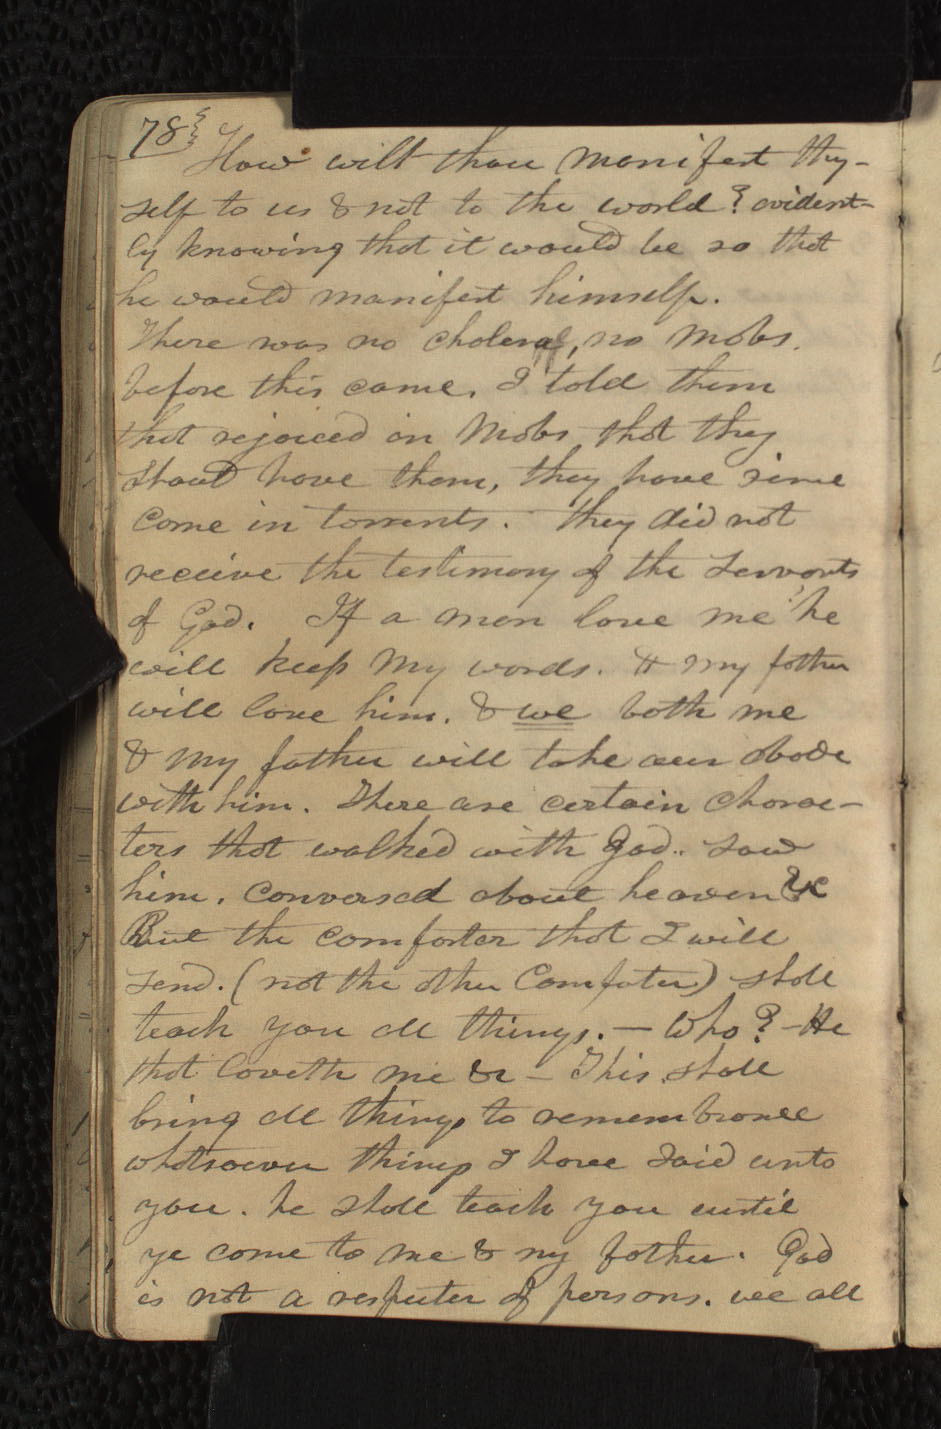 78
How wilt thou manifest thy-
self to us & not to the world? evident-
ly knowing that it would be so that
he would manifest himself.
There was no cholera, no Mobs.
before this came. I told them
that rejoiced in Mobs that they
should have them, they have since
Come in torrents. They did not
receive the testimony of the servants
of God. If a man love me he
will keep My words. & my father
will love him. & we both me
& My father will take our abode
with him. There are certain Charac-
ters that walked with God. saw
him. Conversed about heaven &c
But the comforter that I will
send. (not the other Comforter) shall
teach you all things. — Who? – He
that loveth me &c – This shall
bring all things to remembrance
whatsoever things I have said unto
you. he shall teach you until
ye come to me & my father. God
is not a respecter of persons. we all